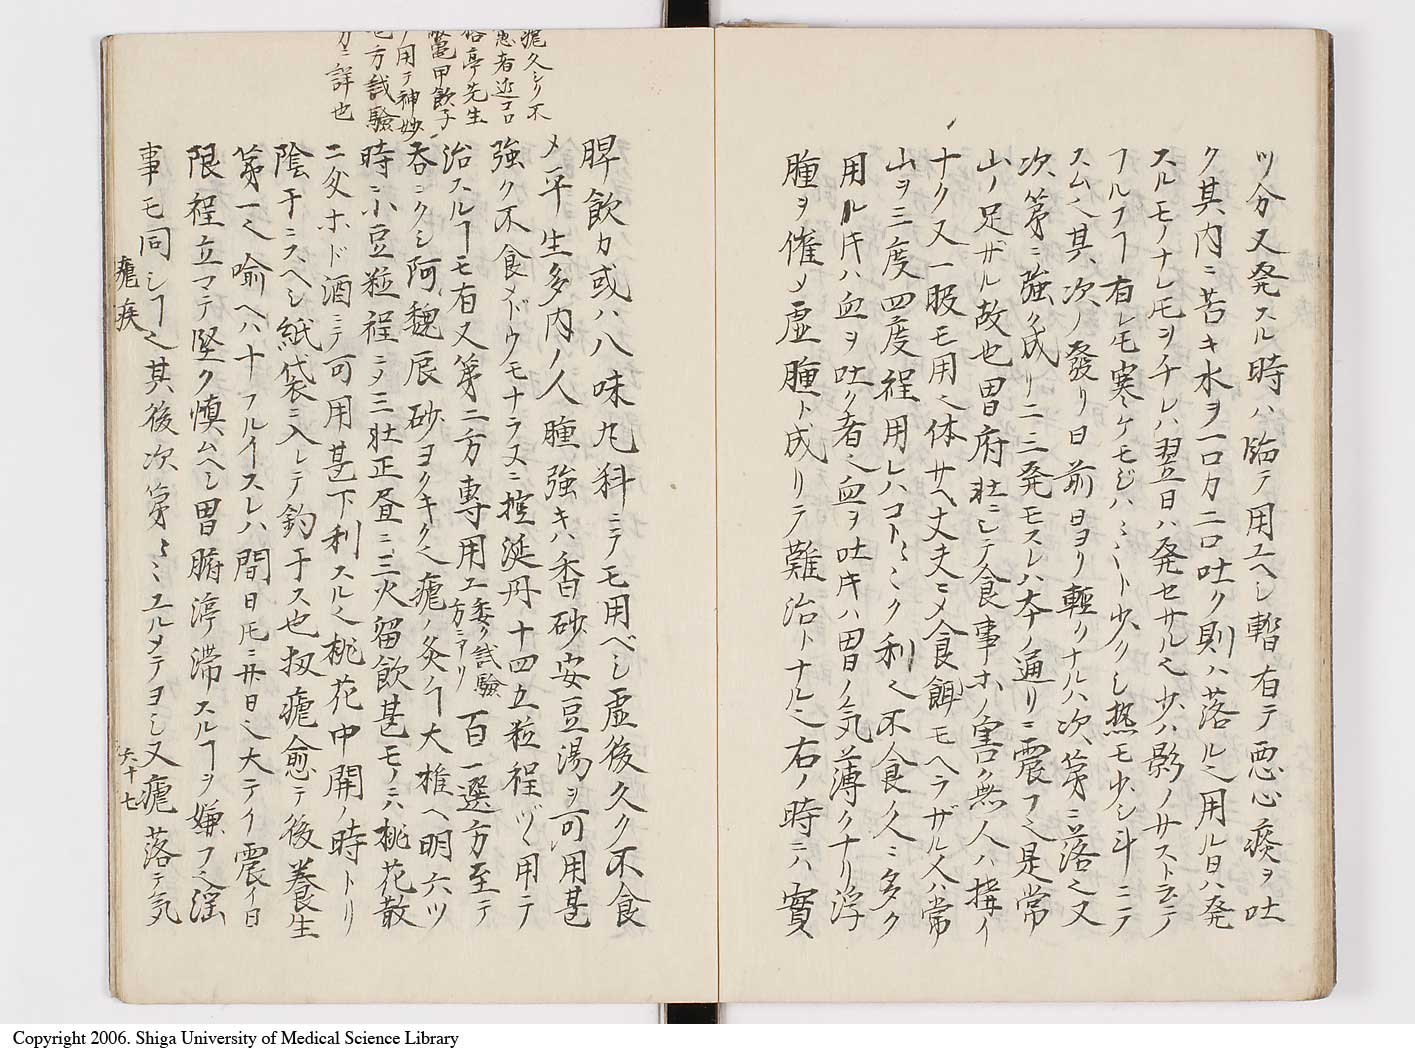 ツ分又発スル時ハ臨テ用ユヘシ暫有テ悪心痰ヲ吐
ク其内ニ苦キ水ヲ一口カ二口吐ク則ハ落ル之用ル日ハ発
スルモノナレ𪜈ヲチレハ翌日ハ発セサル之少ハ影ノサスト云テ
フルフヿ有レ𪜈寒ケモジハミミト少クシ熱モ少シ斗ニテ
スム之其次ノ發リ日前ヨリ輕クナルハ次第ニ落之又
次第ニ強ク成リ二三発モスレハ本ノ通リニ震フ之是常
山ノ足ザル故也胃府壮ニシテ食事ホノ害ク無人ハ構イ
ナク又一服モ用之体サヘ丈夫ニメ食餌モヘラザル人ハ常
山ヲ三度四度程用レハコトミミク利之不食ノ人ニ多ク
用ルキハ血ヲ吐ク者之血ヲ吐キハ胃ノ気薄クナリ浮
腫ヲ催メ虚腫ト成リテ難治トナル之右ノ時ニハ實
脾飲カ或ハ八味丸料ニテモ用ベシ虚後久ク不食
メ平生多肉ノ人腫強キハ香砂安豆湯ヲ可用甚
強ク不食メドウモナラヌニ控涎丹十四五粒程ヅヽ用テ
治スルヿモ有又第二方専用ユ委ク試驗方ニアリ百一選方至テ
呑ニクシ阿魏辰砂ヨクキク之瘧ノ灸ヿ大椎ヘ明六ツ
時ニ小豆粒程ニメ三壮正昼ニ三火留飲甚モノニハ桃花散
二匁ホド酒ニテ可用甚下利スル之桃花中開ノ時トリ
陰干ニスヘシ紙袋ニ入レテ釣干ス也扨瘧愈テ後養生
第一之喩ヘハ十フルイスレハ間日𪜈ニ廿日之大テイ震イ日
限程立マテ堅ク慎ムヘシ胃腑渟滞スルヿヲ嫌フ之淫
事モ同シヿ之其後次第ミミユルメテヨシ又瘧落テ気
瘧疾
六十七
瘧久シク不
愈者近コロ
亭先生
鼈甲飲子
ヲ用テ神妙
方試驗
方ニ詳也